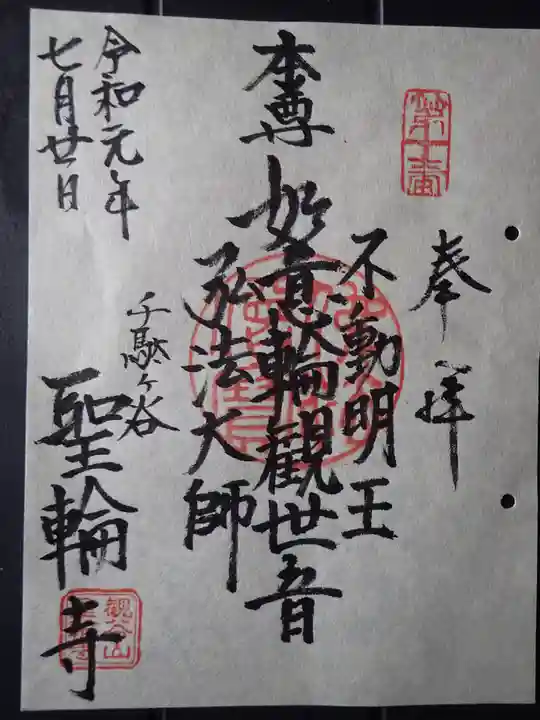 第十番
奉拝
不動明王
本尊 如意輪觀世音
弘法大師
千駄ヶ谷
聖輪寺
令和元年
七月廿日
觀谷山